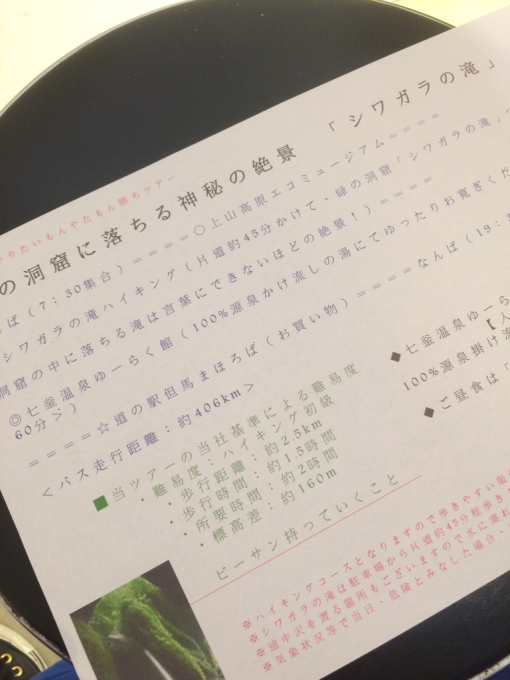 やりたいもんやたもん勝ちツアー
の洞窟に落ちる神秘の絶景 「シワガラの滝」
ば(7:30集合)====〇上山高原エコミュージアム====
シワガラの滝ハイキング(片道約45分かけて、緑の洞窟「シワガラの滝」
洞窟の中に落ちる滝は言葉にできないほどの絶景!)====
◎七釜温泉ゆーらく館(100%源泉かけ流しの湯にてゆったりお寛ぎくだ
60分>)
====☆道の駅但馬まほろば(お買い物)====なんば(19:3
<バス走行距離:約406km>
■当ツアーの当社基準による難易度
・難易度:ハイキング初級
・歩行距離:約2.5km
・歩行時間:約1.5時間
・所要時間:約2時間
・標高差:約160m
ビーサン持っていくこと
◆七釜温泉ゆーら
【人
100%源泉掛け流
◆ご昼食は「
※ハイキングコースとなりますので歩きやすい服
※シワガラの滝は駐車場から片道約45分程歩き
※途中沢を渡る箇所もございますので水に濡れ
※気象状況等で当日、危険とみなした場合、